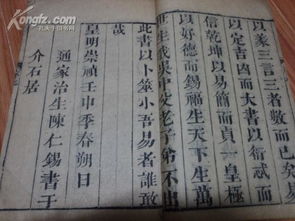 以蓍三言三者數而已矣易
以定吉凶而大書以衍忒而
信乾坤以易簡而貞一皇極
以好德而錫福生天下生萬
世生我吳中父老子弟不出
此書以卜筮小吾易者誰敢
哉
皇明崇禎壬申季春朔日
通家治生陳仁錫書于
介石居
KONGFZ.COM
孔夫子旧书网